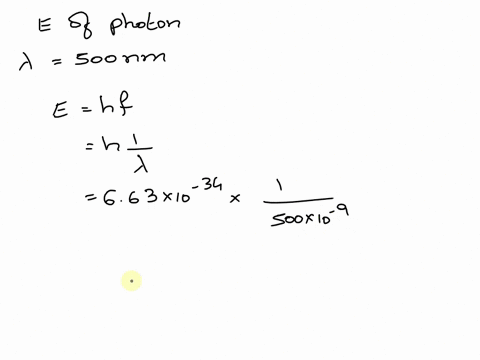 E of photon
λ = 500 nm
E = hf
= h 1/λ
= 6.63 × 10^-34 × 1/(500 × 10^-9)